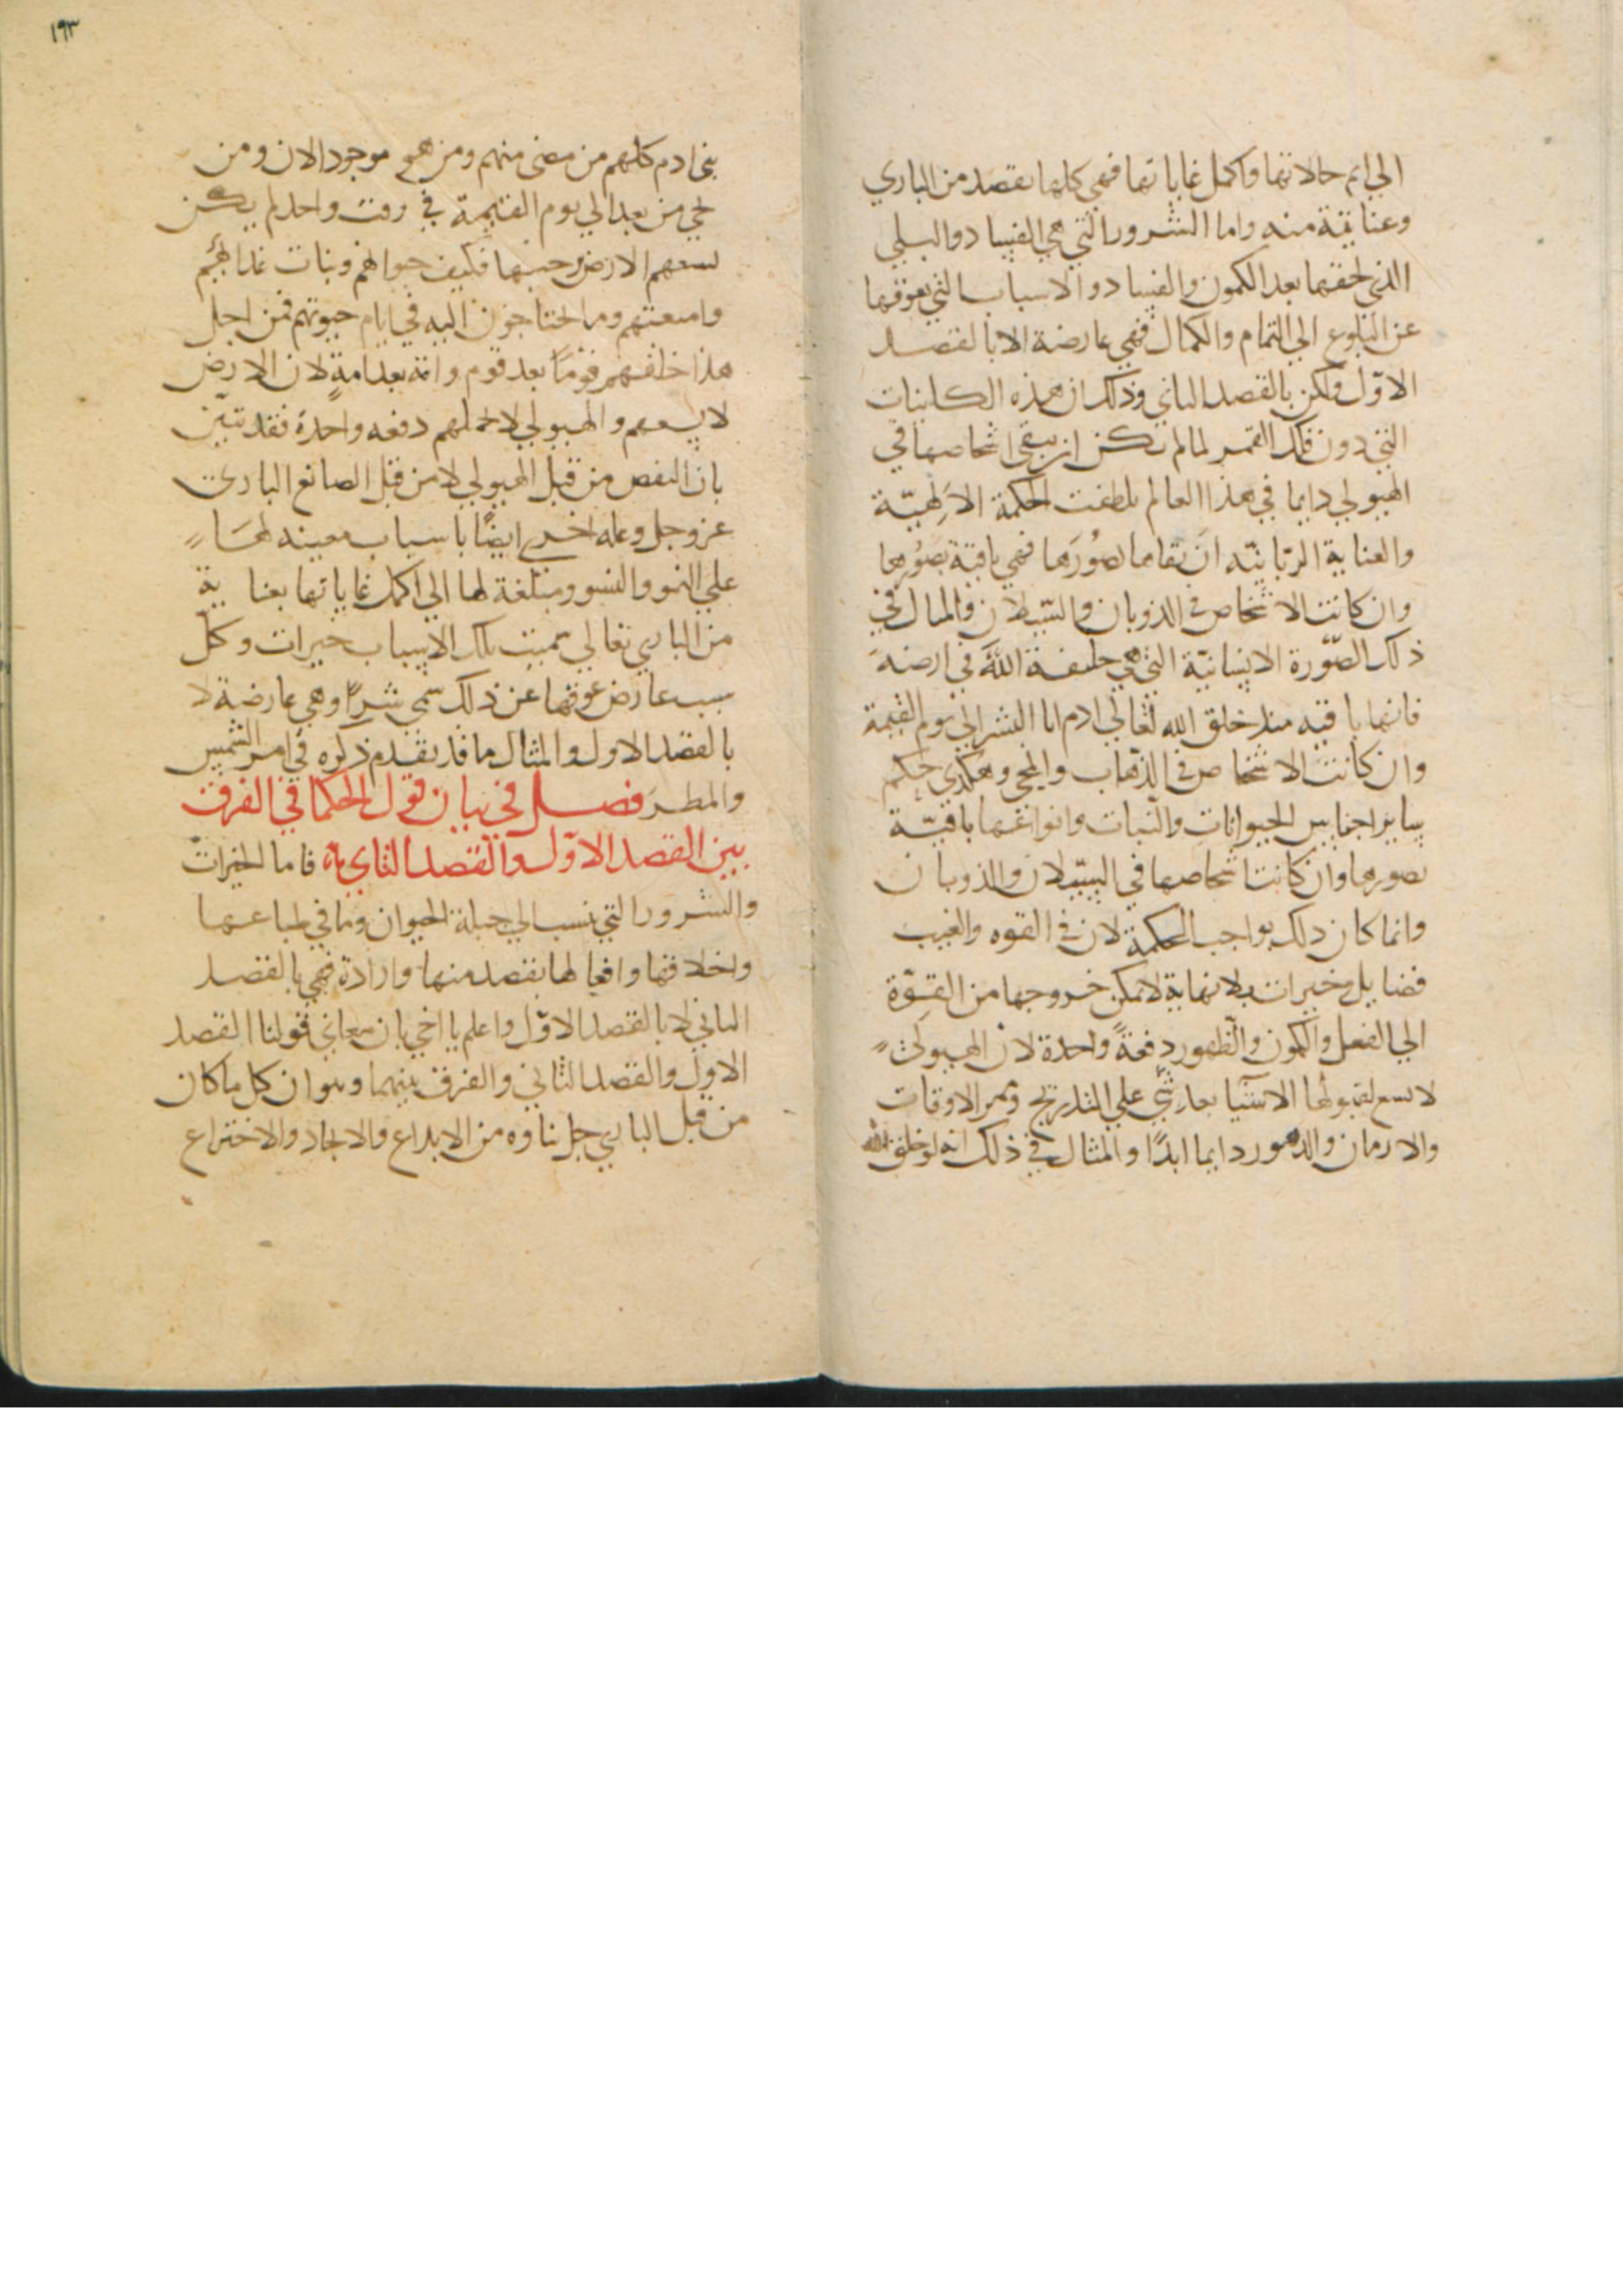 الي اتم حالاتها واكمل غاياتها فهي كلها بقصد من الباري
وعناية منه واما الشرور التي هي الفساد والبلي
الذي لحقها بعد الكون والفساد والاسباب التي يعوقها
عن البلوغ الي التمام والكمال فهي عارضة الا بالقصد
الاوّل ولكن بالقصد الثاني وذلك ان هذه الكاينات
التي دون فلك القمر لما لم يكن ان يبقي اشخاصها في
الهيولي دايما في هذا العالم بلطفت الحكمة الالهيّة
والعناية الربّانيّه ان بقاها بصُوَرها فهي باقية بصُوَرها
وان كانت الاشخاص في الذوبان والسّيلان والمثال في
ذلك الصّورة الانسانيّة التي هي خليفة الله في ارضه
فانها باقيه منذ خلق الله تعالي ادم ابا البشر الي يوم القيمة
وان كانت الاشخاص في الذّهاب والمجي وهكذي حكم
ساير اجناس الحيوانات والنبات وانواعها باقيّة
بصورها وان كانت اشخاصها في السّيلان والذوبان
وانما كان ذلك بواجب الحكمة لان في القوه والغيب
فضايل وخيرات بلا نهاية لا يمكن خروجها من القوّة
الي الفعل والكمون والظهور دفعةً واحدة لان الهيولي
لا يسع لقبولها الا شيّا بعد شيّ علي التدريج وممر الاوقات
والازمان والدهور دايما ابدًا والمثال في ذلك انه لو خلق الله
١٩٣
بني ادم كلهم من مضي منهم ومن هو موجود الان ومن
يجي من بعد الي يوم القيمة في وقت واحد لم يكن
لسعهم الارض برحبها فكيف حيوانهم ونبات غذائهم
وامتعتهم وما يحتاجون اليه في ايام حيوتهم فمن اجل
هذا خلقهم قومًا بعد قوم وامة بعد امةٍ لان الارض
لا يسعهم والهيولي لا تحملهم دفعه واحدة فقد تبيّن
بان النقص من قبل الهيولي لا من قبل الصانع الباري
عز وجل وعله اخري ايضًا باسباب معينه لها
علي النمو والنشو ومبلغة لها الي اكمل غاياتها بعناية
من الباري تعالي سميت تلك الاسباب خيرات وكل
سبب عارض عوقها عن ذلك سمي شرا وهي عارضة لا
بالقصد الاول والمثال ما قد تقدم ذكره في امر الشمس
والمطر فصل في بيان قول الحكما في الفرق
بين القصد الاوّل والقصد الثاني فاما الخيرات
والشرور التي ينسب الي جبلة الحيوان وما في طباعها
واخلاقها وافعالها بقصد منها وارادة فهي بالقصد
الثاني لا بالقصد الاوّل واعلم يا اخي بان معاني قولنا القصد
الاول والقصد الثاني والفرق بينهما وهو ان كل ما كان
من قبل الباري جل ثناوه من الابداع والايجاد والاختراع